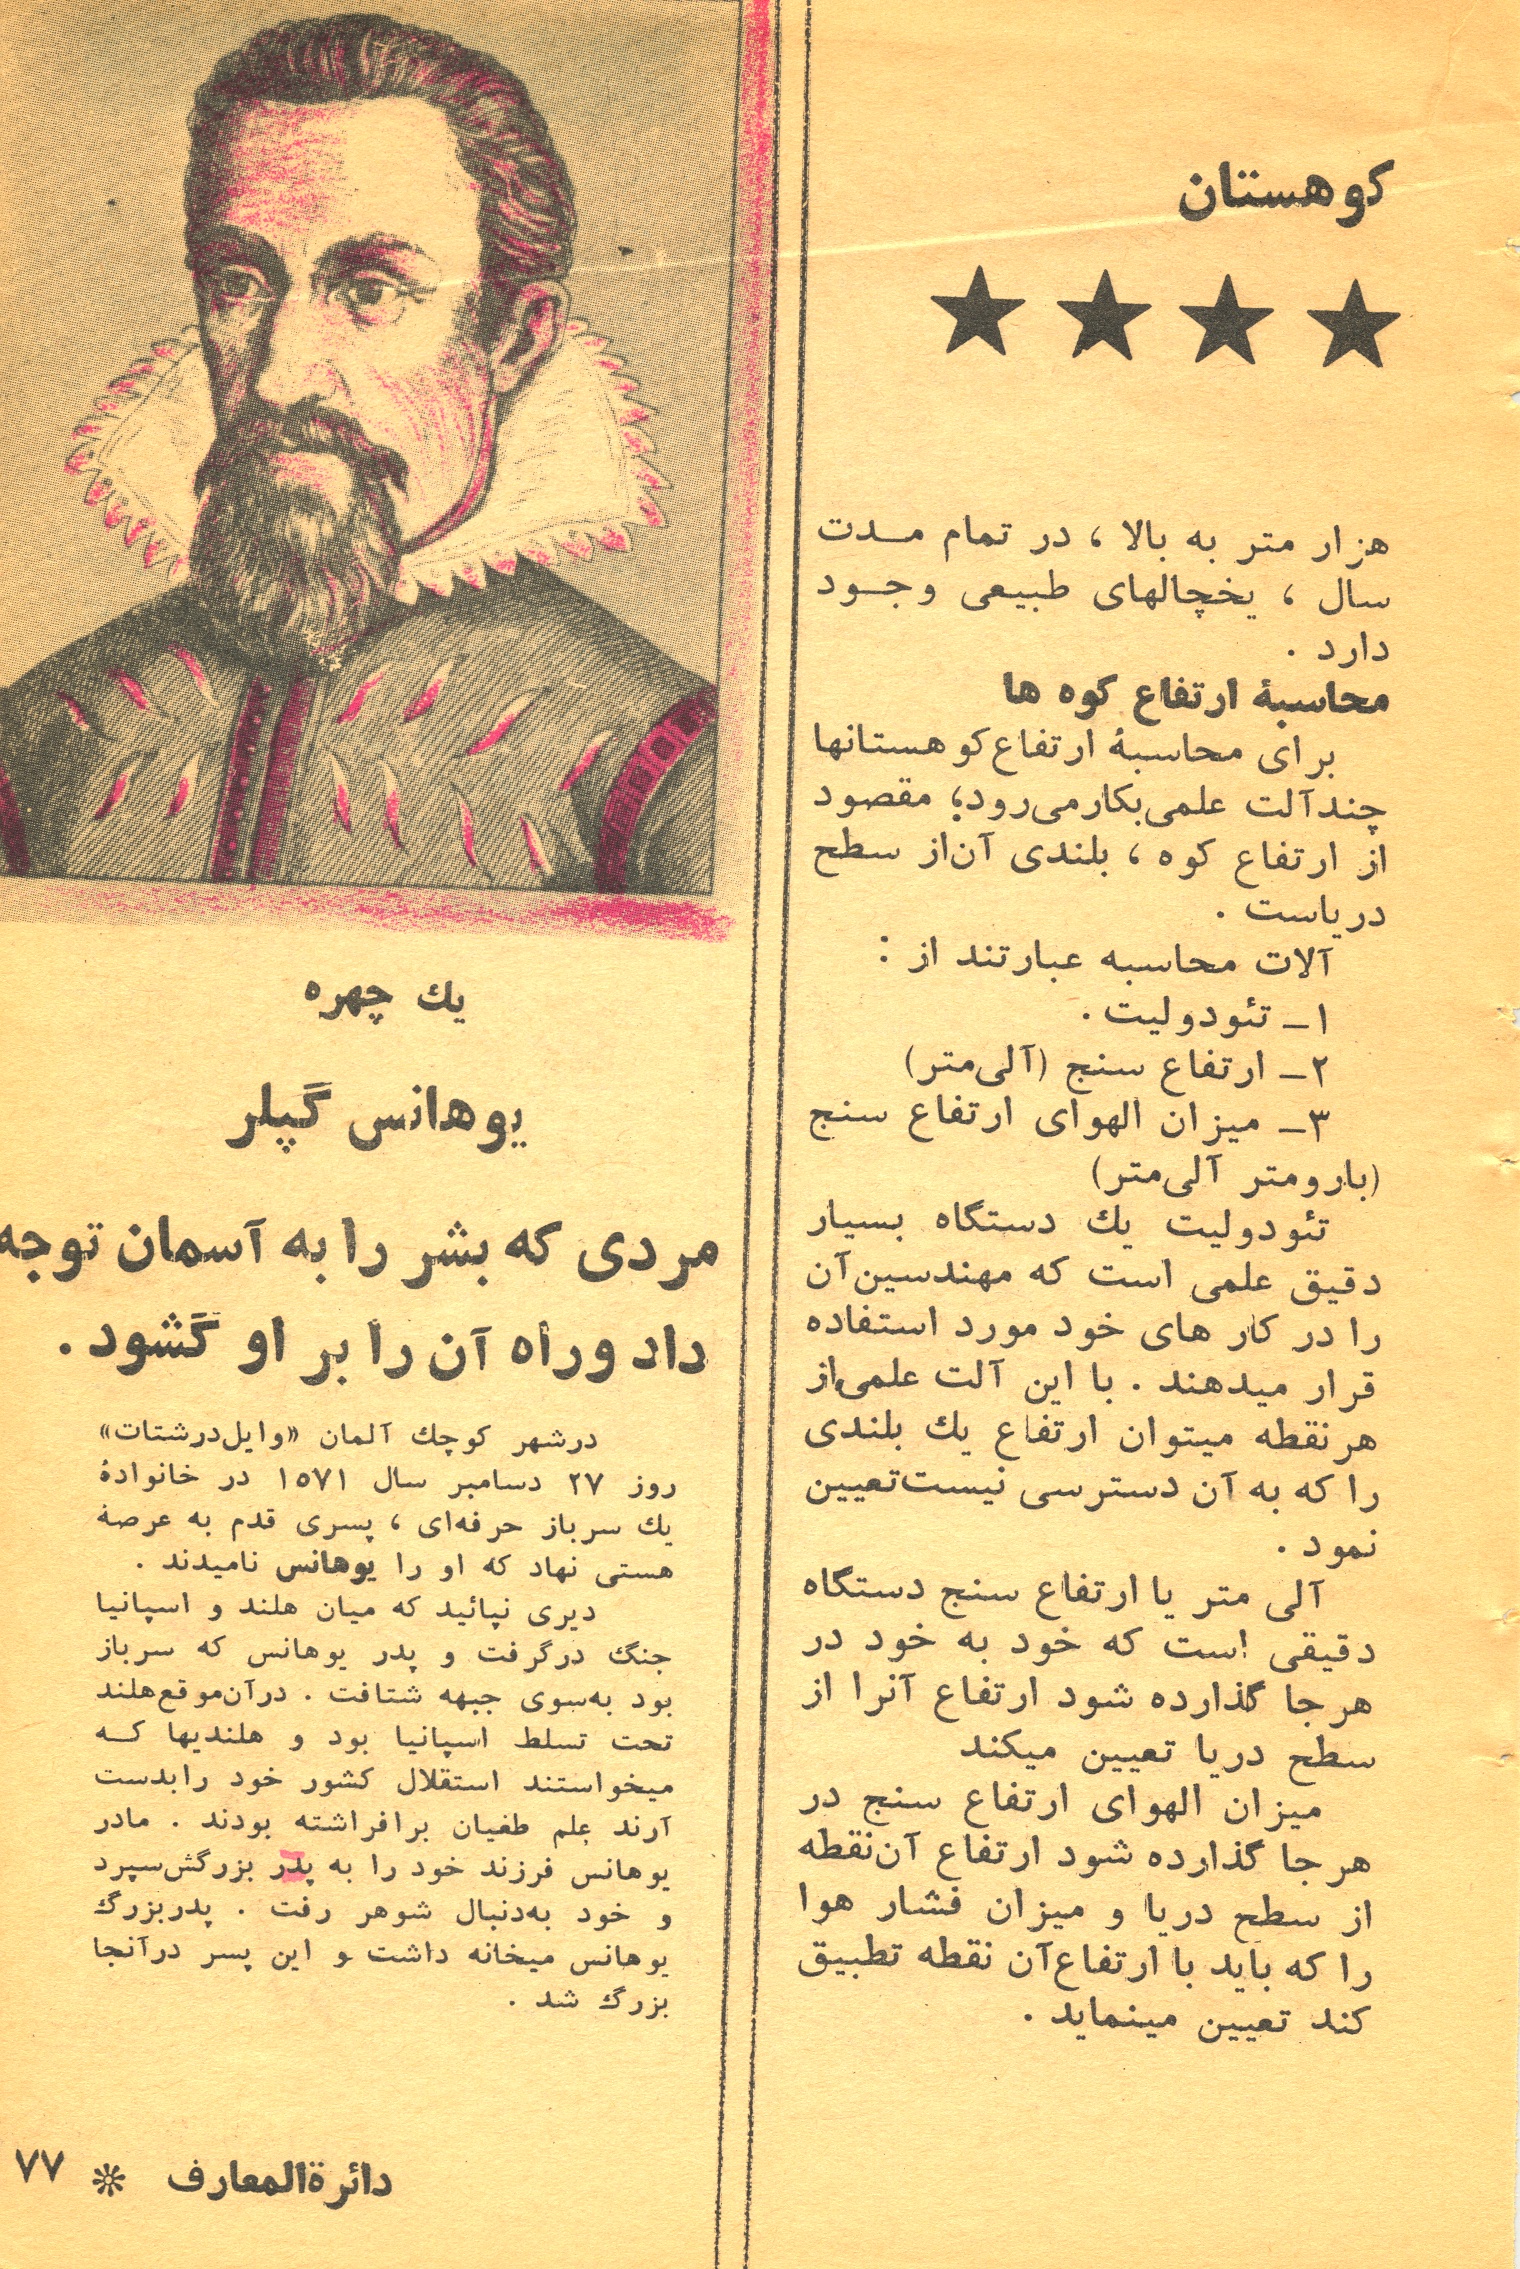 کوهستان
هزار متر به بالا ، در تمام مـدت
سال ، یخچالهای طبیعی وجـود
دارد .
محاسبهٔ ارتفاع کوه ها
برای محاسبهٔ ارتفاع کوهستانها
چند آلت علمی بکار می‌رود؛ مقصود
از ارتفاع کوه ، بلندی آن از سطح
دریاست .
آلات محاسبه عبارتند از :
۱ــ تئودولیت .
۲ــ ارتفاع سنج (آلی‌متر)
۳ــ میزان الهوای ارتفاع سنج
(بارومتر آلی‌متر)
تئودولیت یك دستگاه بسیار
دقیق علمی است که مهندسین آن
را در کار های خود مورد استفاده
قرار میدهند . با این آلت علمی از
هر نقطه میتوان ارتفاع یك بلندی
را که به آن دسترسی نیست تعیین
نمود .
آلی متر یا ارتفاع سنج دستگاه
دقیقی است که خود به خود در
هر جا گذارده شود ارتفاع آنرا از
سطح دریا تعیین میکند
میزان الهوای ارتفاع سنج در
هر جا گذارده شود ارتفاع آن نقطه
از سطح دریا و میزان فشار هوا
را که باید با ارتفاع آن نقطه تطبیق
کند تعیین مینماید .
یك چهره
یوهانس گپلر
مردی که بشر را به آسمان توجه
داد و راه آن را بر او گشود .
در شهر کوچك آلمان «وایل‌درشتات»
روز ۲۷ دسامبر سال ۱۵۷۱ در خانوادهٔ
یك سرباز حرفه‌ای ، پسری قدم به عرصهٔ
هستی نهاد که او را یوهانس نامیدند .
دیری نپائید که میان هلند و اسپانیا
جنگ درگرفت و پدر یوهانس که سرباز
بود به‌سوی جبهه شتافت . در آن موقع هلند
تحت تسلط اسپانیا بود و هلندیها کـه
میخواستند استقلال کشور خود را بدست
آرند علم طغیان برافراشته بودند . مادر
یوهانس فرزند خود را به پدر بزرگش سپرد
و خود به‌دنبال شوهر رفت . پدربزرگ
یوهانس میخانه داشت و این پسر در آنجا
بزرگ شد .
دائرةالمعارف ❊ ۷۷